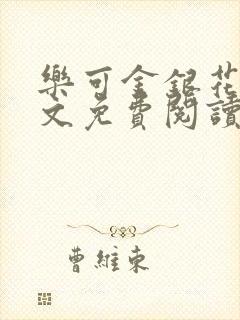 樂可金銀花
文免費閱讀
曹維東